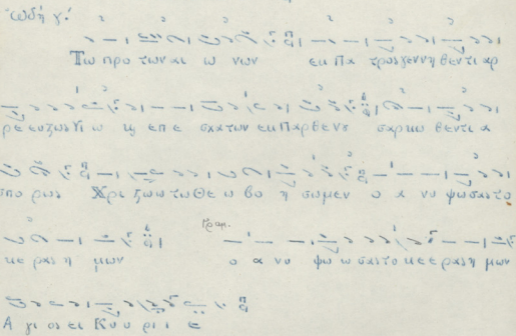 Ὠδή γ΄.
Τω προ των αι ω νων εκ Πα τροςγεννηθεντι αρ
ρευςωςΥι ω κς επ ε σχατων εκΠαρθενου σαρκω θεντι α
σπο ρως Χρι ςωωτωΘε ω βο η σωμεν ο α νυ ψωσαςτο
κε ρας η μων
ο α νυ ψω ωσαςτοκεερας η μων
Α γι οςει Κυυ ρι ι ε